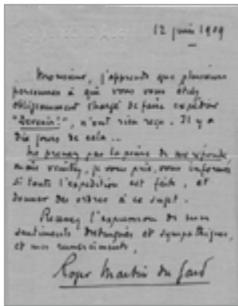 12 juin 1909
Monsieur, j'apprends que plusieurs
personnes à qui vous vous étiez
obligeamment chargé de faire expédier
"Devenir!", n'ont rien reçu. Il y a
dix jours de cela...
Ne prenez pas la peine de me répondre,
mais veuillez, je vous prie, vous informer
si toute l'expédition est faite, et
donner des ordres à ce sujet.
Recevez l'expression de mes
sentiments distingués et sympathiques,
et mes remerciements.
Roger Martin du Gard